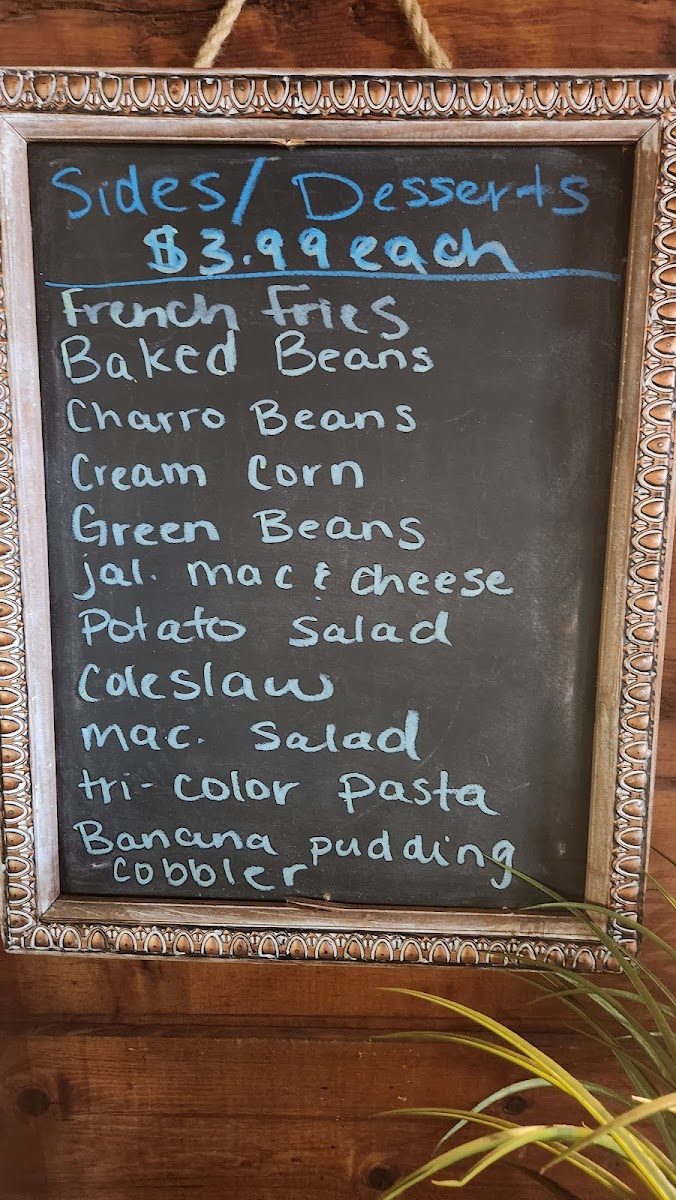 Sides/ Desserts
$3.99 each
French Fries
Baked Beans
Charro Beans
Cream Corn
Green Beans
jal. mac & cheese
Potato Salad
Coleslaw
mac. Salad
tri-color pasta
Banana pudding
cobbler